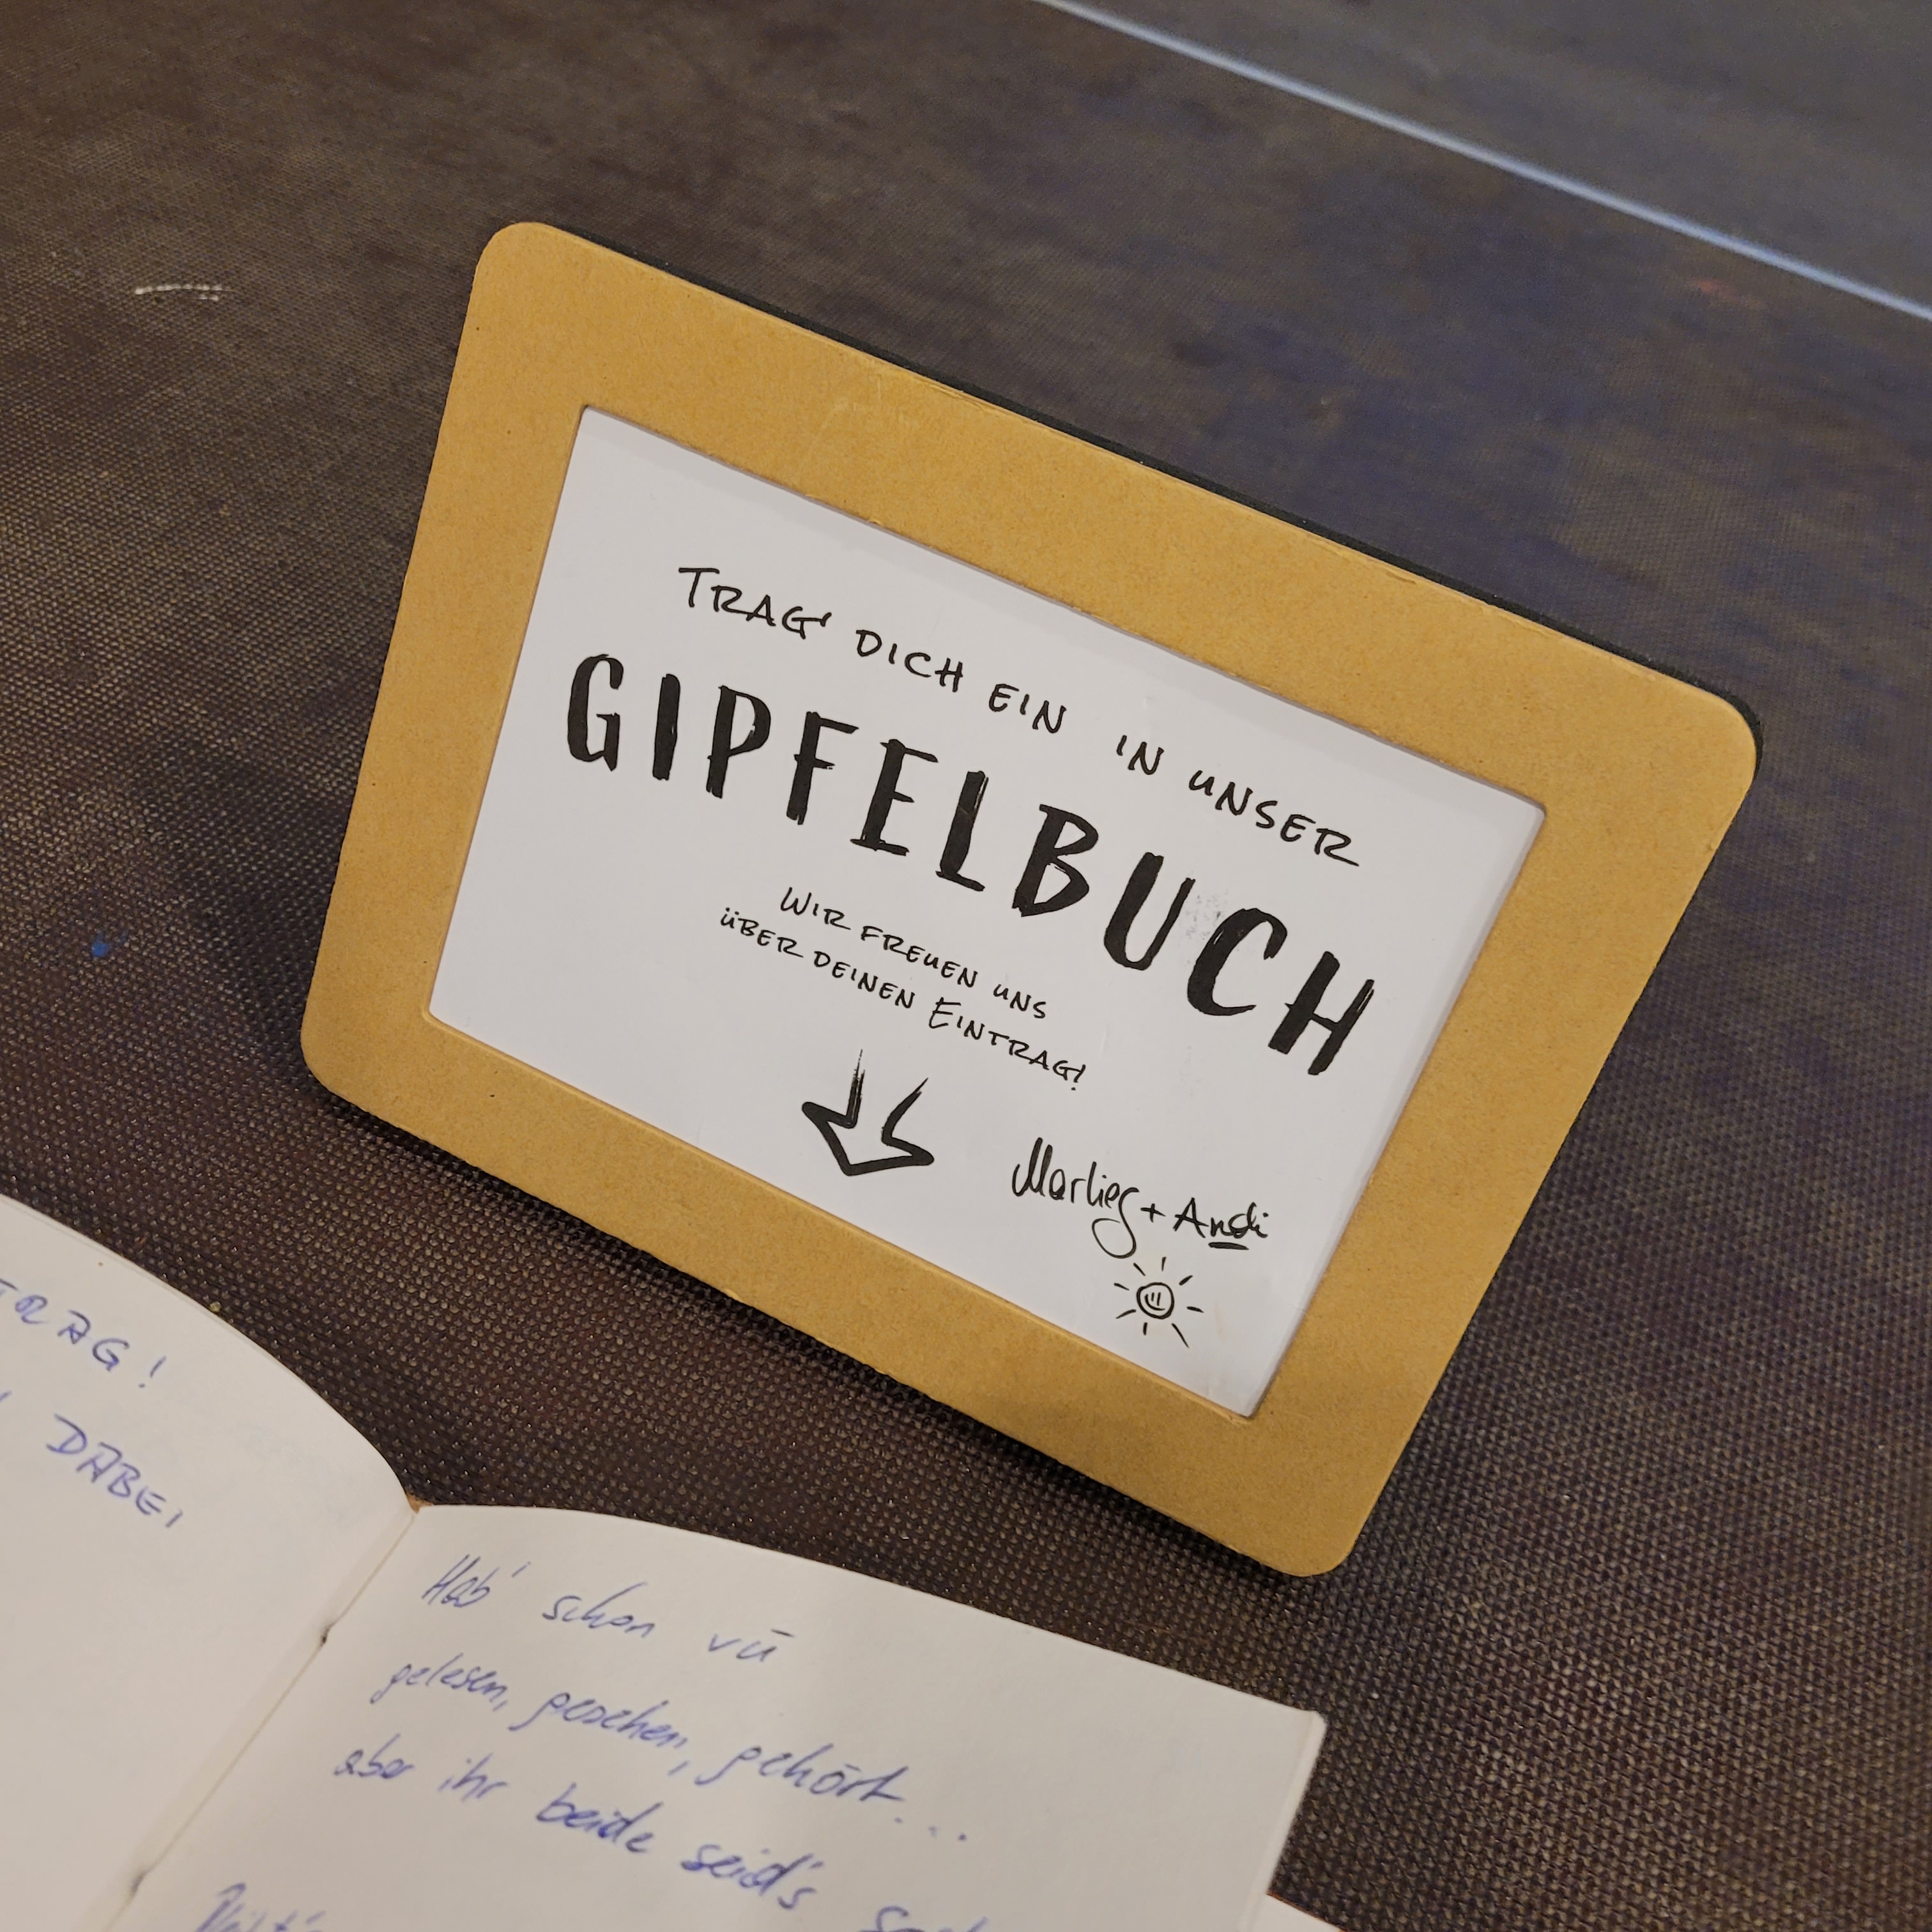 TRAG' DICH EIN IN UNSER
GIPFELBUCH
WIR FREUEN UNS
ÜBER DEINEN EINTRAG!
Marlies + Andi
TRAG!
DABEI
Hab' schon vü
gelesen, gesehen, gehört...
aber ihr beide seid's